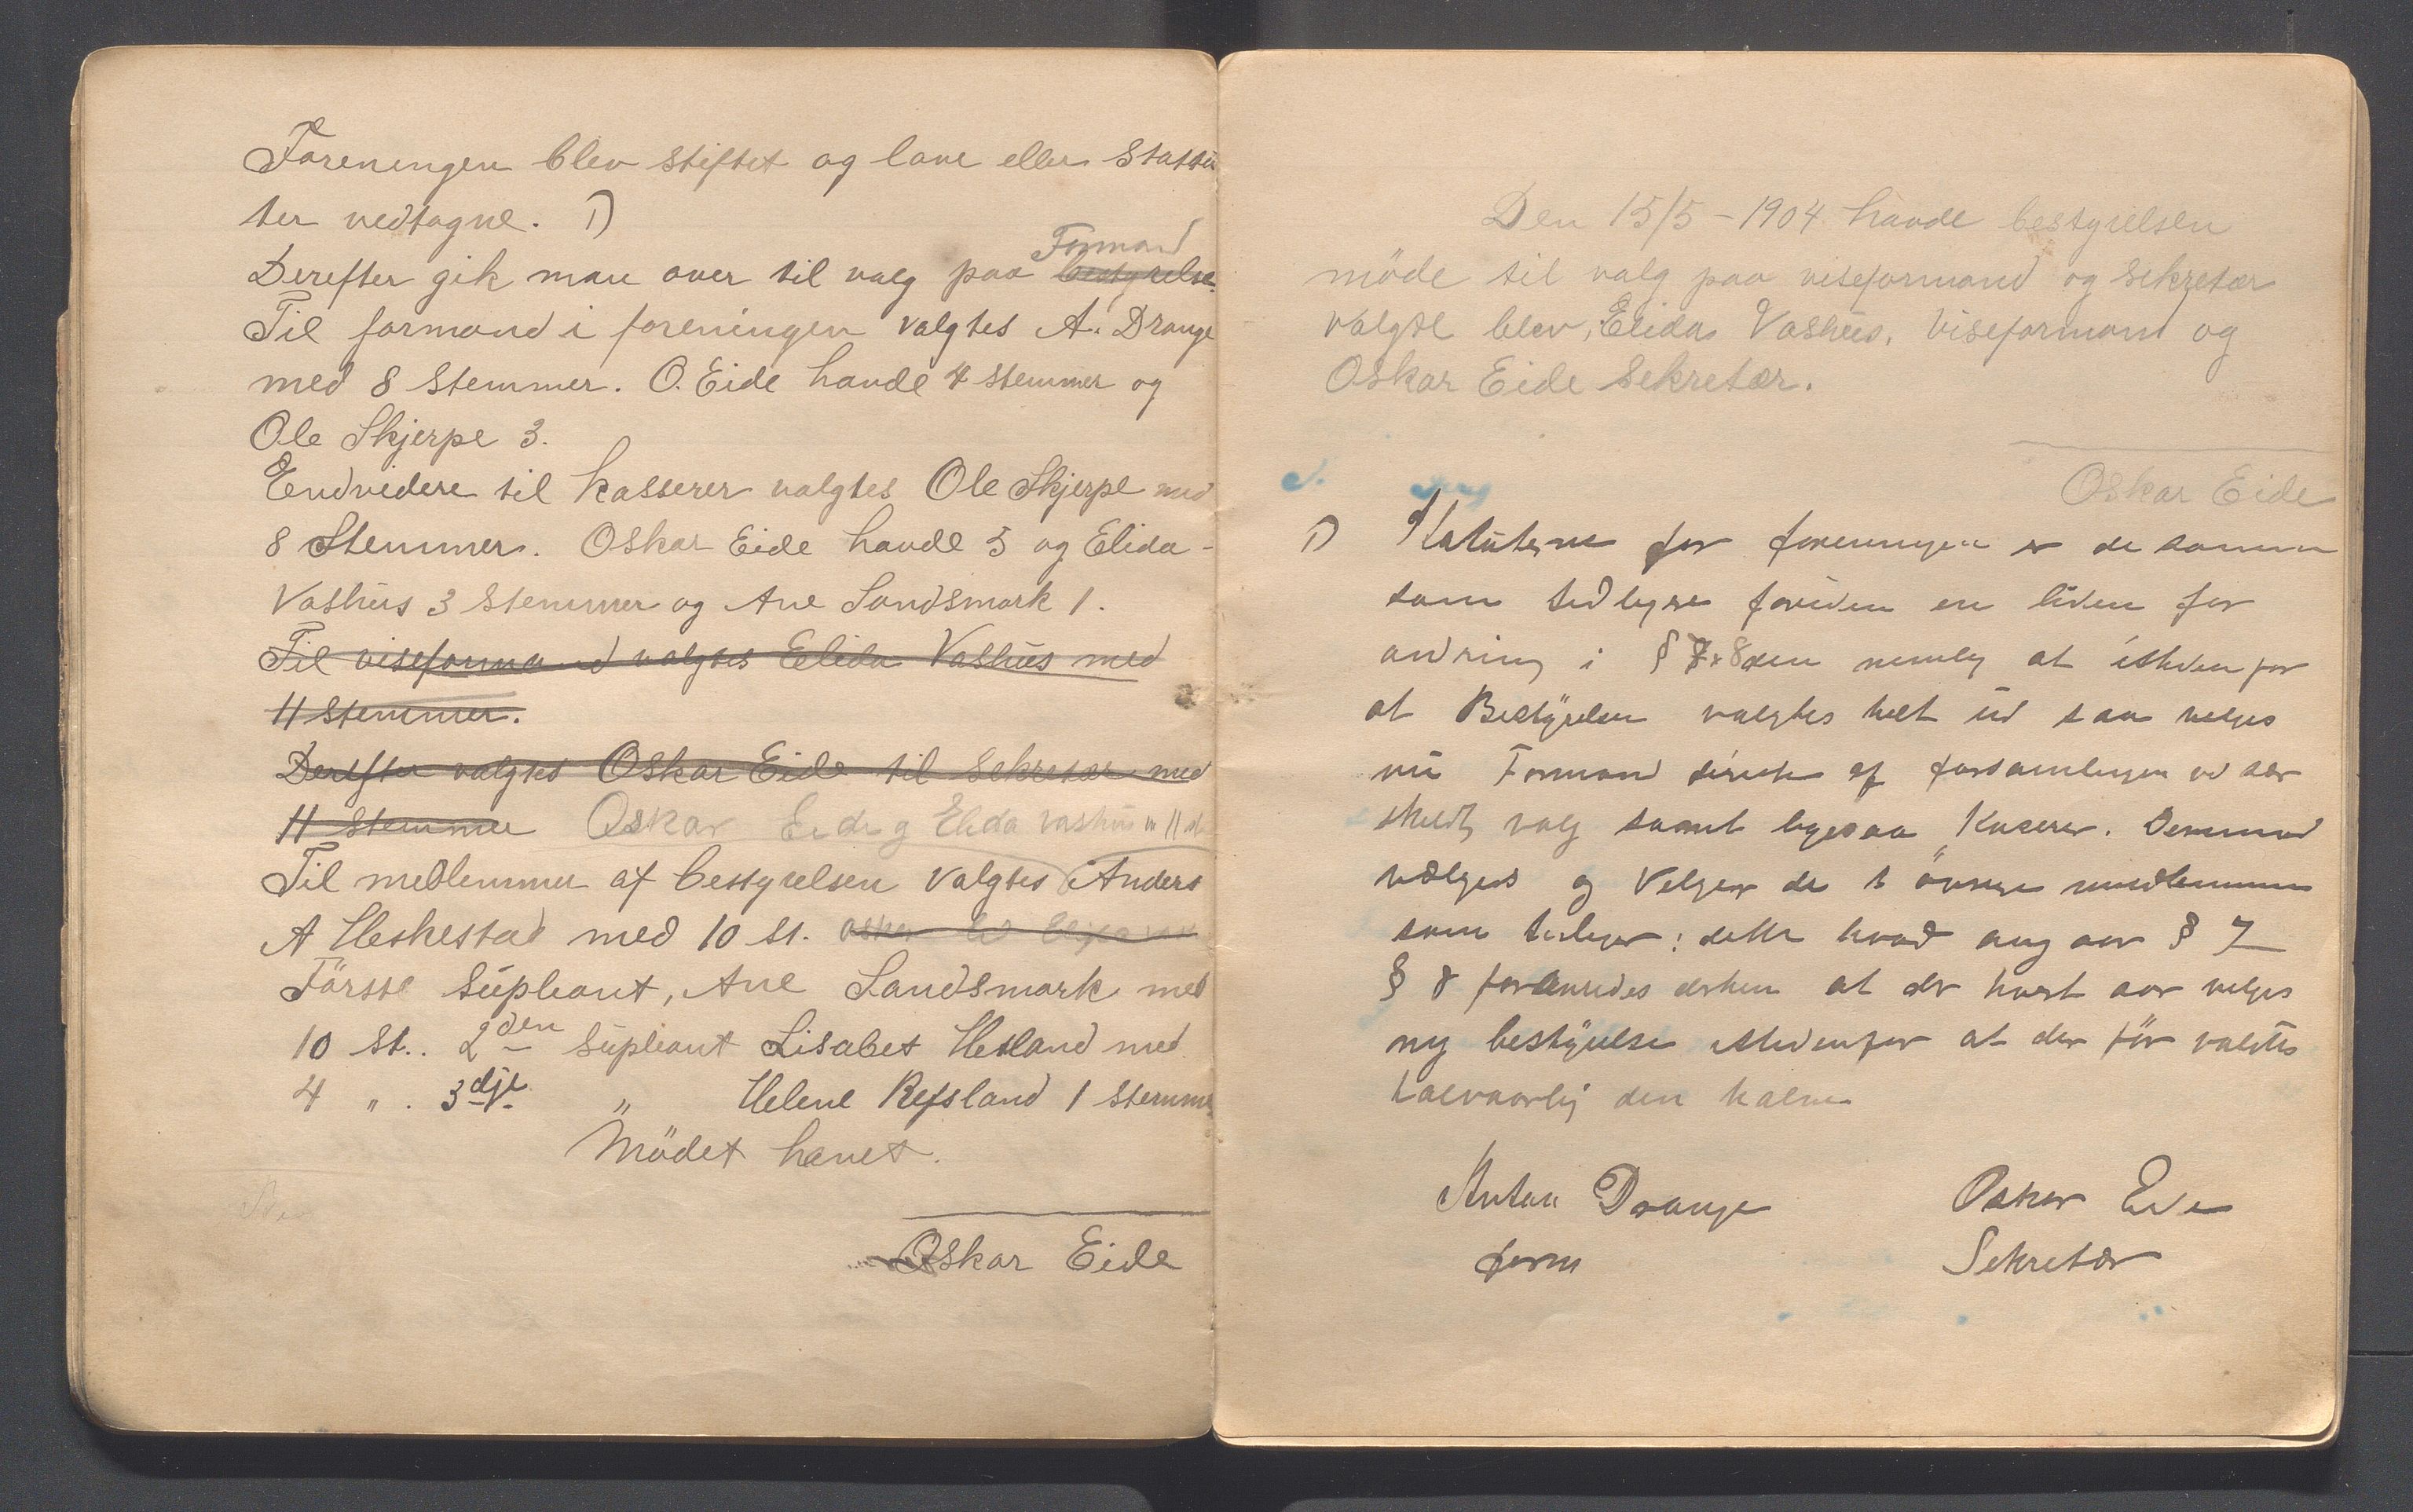 Foreningen blev stiftet og love eller Stattu
ter vedtagne. 1)
Formand
Derefter gik man over til valg paa bestyrelse.
Til formand i foreningen valgtes A. Drange
med 8 Stemmer. O. Eide havde 4 stemmer og
Ole Skjerpe 3.
Endvidere til kasserer valgtes Ole Skjerpe med
8 Stemmer. Oskar Eide havde 5 og Elida
Vashus 3 stemmer og Ane Landsmark 1.
Til viseformand valgtes Elida Vashus med
11 stemmer.
Derefter valgtes Oskar Eide til Sekretær med
11 stemmer Oskar Eide og Elida Vashus m 11 st
Til medlemmer af bestyrelsen valgtes Anders
A Heskestad med 10 St.
Förste Supleant, Ane Landsmark med
10 St.. 2den Supleant Lisabet Hetland med
4 " . 3dje " Helene Refsland 1 Stemme
Mödet hævet.
Oskar Eide
Den 15/5 - 1904 havde bestyrelsen
möde til valg paa viseformand og Sekretær
valgte blev, Elida Vashus, viseformand og
Oskar Eide Sekretær.
Oskar Eide
1) Statuterne for foreningen er de samme
som tidligere foruden en liden for
andring i § 7 & 8 den nemlig at istedenfor
at Bestyrelsen valgtes helt ud saa velges
nu Formand direkte af forsamlingen ved sær
skildt valg samt ligesaa Kaserer. Dernæst
vælges og Velger de 3 övrige medlemmer
som tidliger: dette hvad ang aar § 7
§ 8 forandredes derhen at der hvert aar velges
ny bestyrelse istedenfor at der för valgtes
halvaarlig den halve
Anton Drange Oskar Eide
form Sekretær